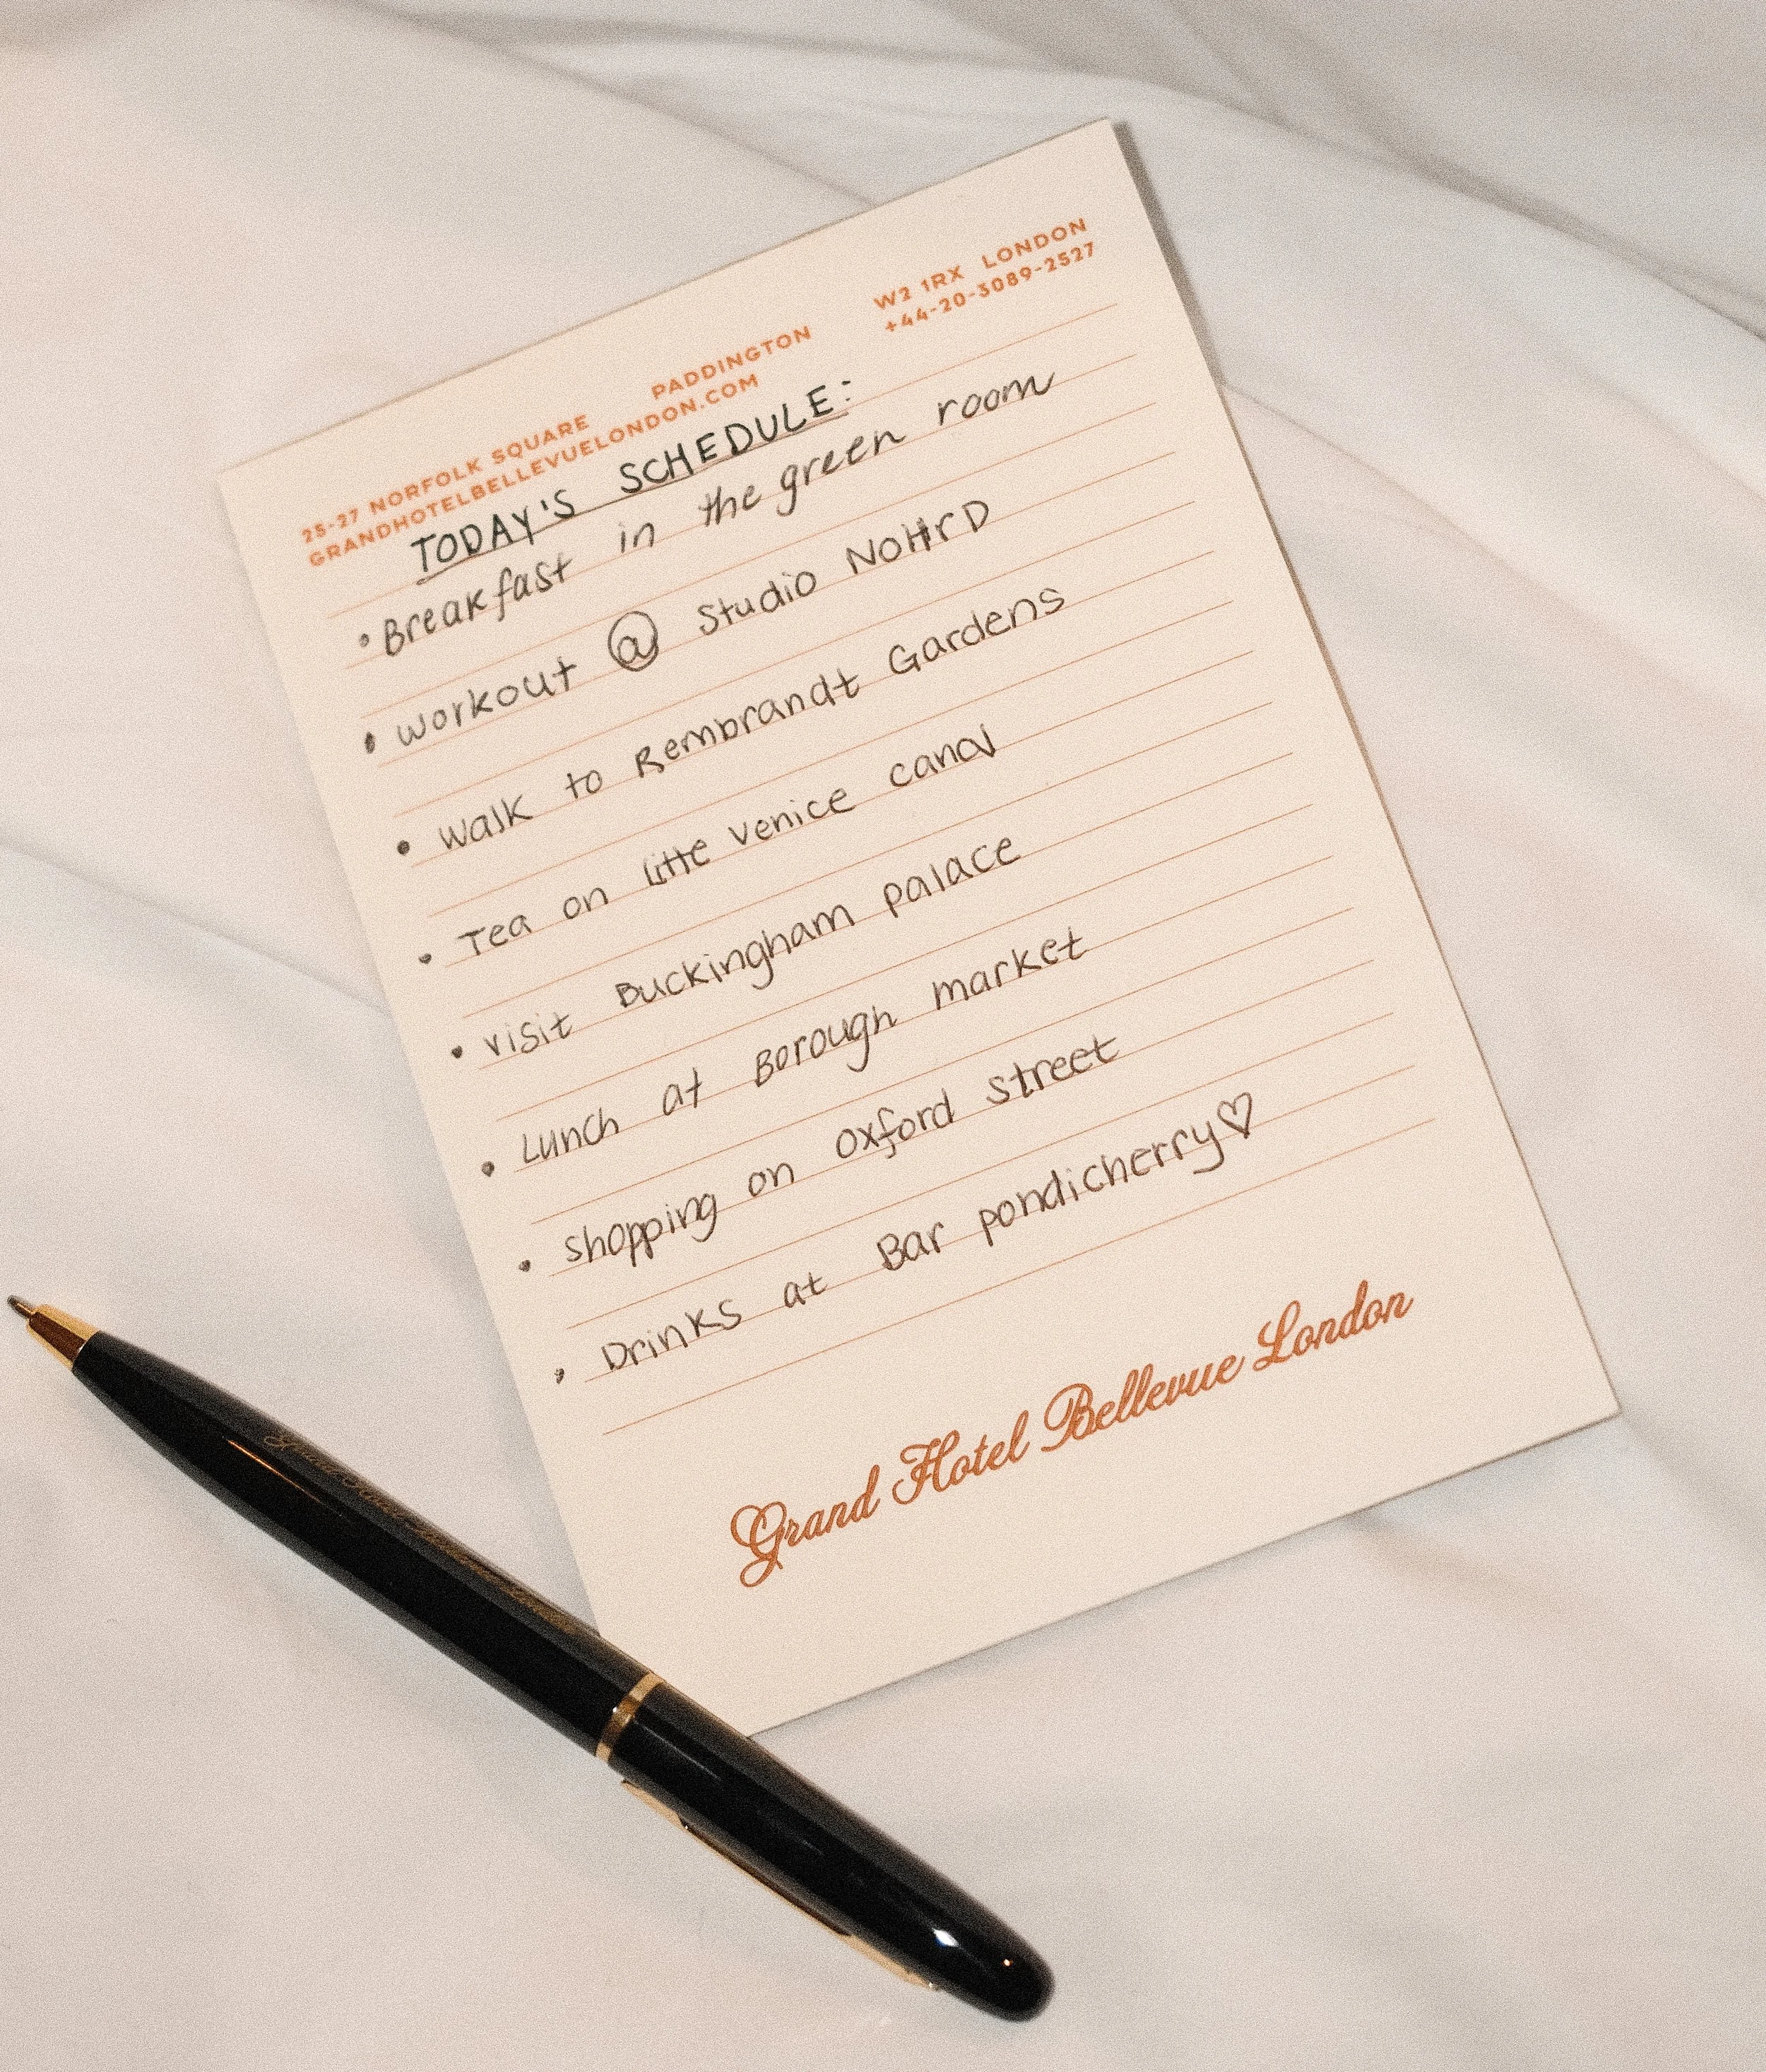 25-27 NORFOLK SQUARE PADDINGTON W2 1RX LONDON
GRANDHOTELBELLEVUELONDON.COM +44-20-3089-2527
TODAY'S SCHEDULE:
• Breakfast in the green room
• workout @ Studio NOHrD
• walk to Rembrandt Gardens
• Tea on little venice canal
• visit Buckingham palace
• Lunch at Borough market
• shopping on oxford street
• Drinks at Bar pondicherry♡
Grand Hotel Bellevue London